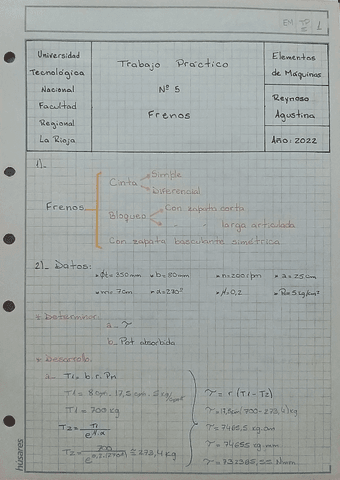 EM TP 5 1
Universidad
Tecnológica
Nacional
Facultad
Regional
La Rioja
Trabajo Práctico
Nº 5
Frenos
Elementos
de Máquinas
Reynoso
Agustina
Año: 2022
1)_
Frenos
Cinta
Simple
Diferencial
Bloques
Con zapata corta
" " larga articulada
Con zapata basculante simétrica
2)_ Datos:
* Øt = 350mm * b = 80mm * n = 200rpm * a = 25cm
* m = 7cm * α = 270º * μ = 0,2 * P = 5 kg/cm²
* Determinar:
a_ τ
b_ Pot absorbida
* Desarrollo:
a_ T1 = b . r . Pn
T1 = 8cm . 17,5cm . 5 kg/cm²
T1 = 700 kg
T2 = T1 / e^μ.α
T2 = 700 / ≅ 273,4 kg
τ = r (T1 - T2)
τ = 17,5cm (700 - 273,4) kg
τ = 7465,5 kg.cm
τ = 74655 kg.mm
τ = Nmm
húsares